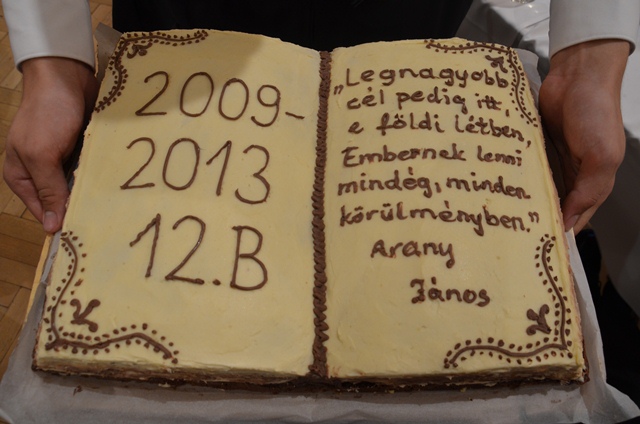 2009-
2013
12.B
"Legnagyobb
cél pedig itt,
e földi létben,
Embernek lenni
mindég, minden
körülményben."
Arany
János